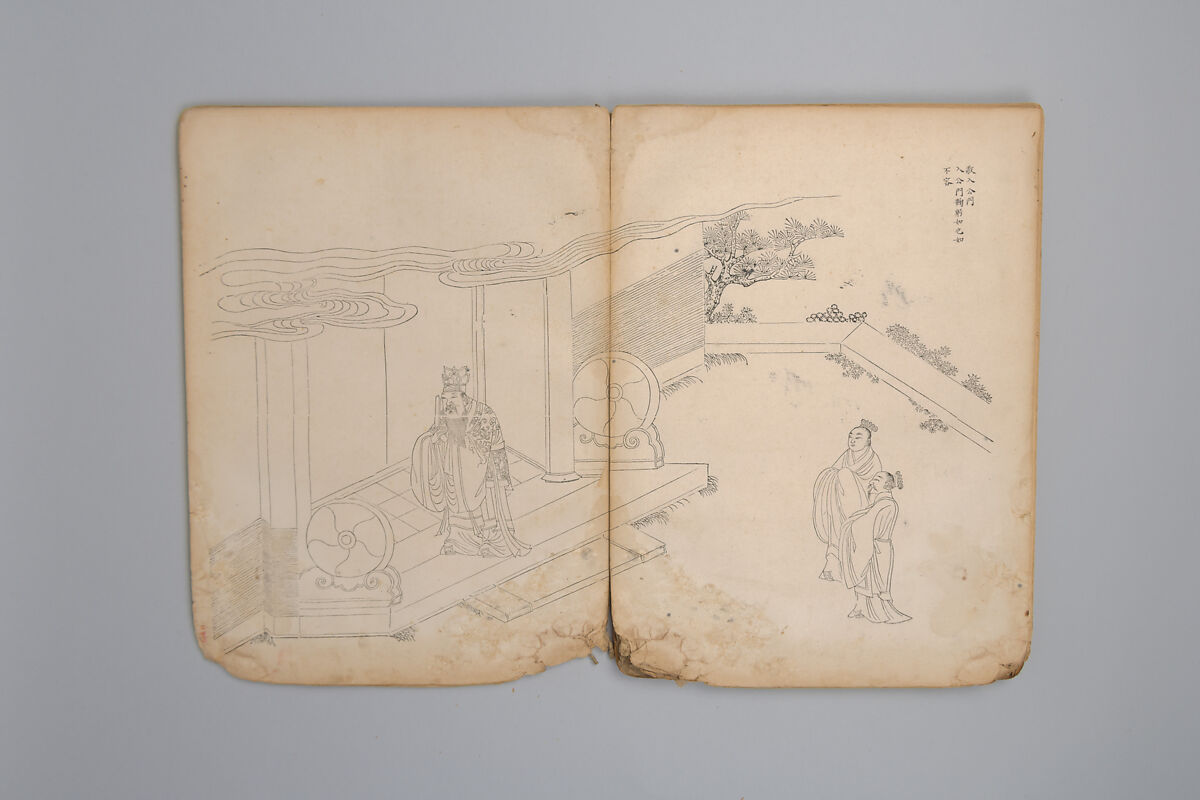 敬入公門
入公門鞠躬如也如
不容